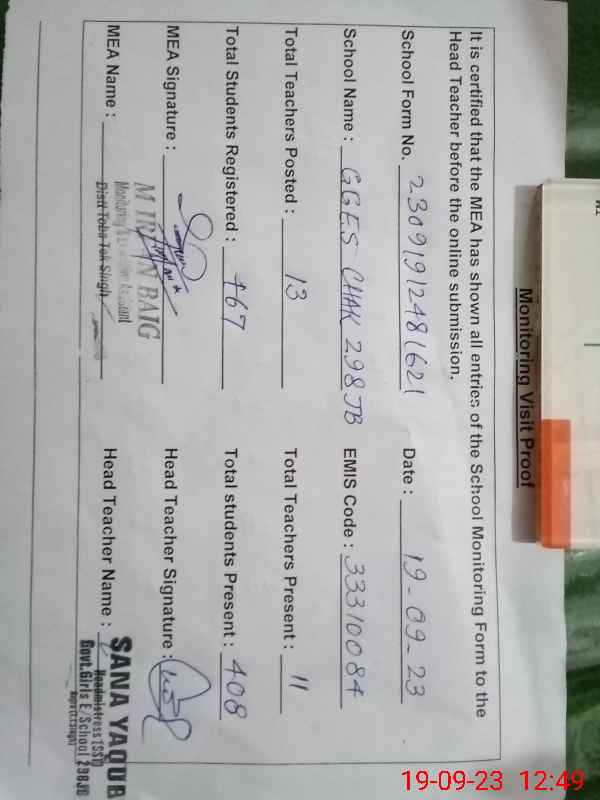 Monitoring Visit Proof
It is certified that the MEA has shown all entries of the School Monitoring Form to the
Head Teacher before the online submission.
School Form No. 23091912481621 Date : 19-09-23
School Name : GGES CHAK 298JB EMIS Code : 33310084
Total Teachers Posted : 13 Total Teachers Present : 11
Total Students Registered : 467 Total students Present : 408
MEA Signature : Head Teacher Signature :
MEA Name : Head Teacher Name :
M IRFAN BAIG
Distt Toba Tek Singh
SANA YAQUB
Headmistress (SST)
Govt.Girls E/School 298JB
19-09-23 12:49